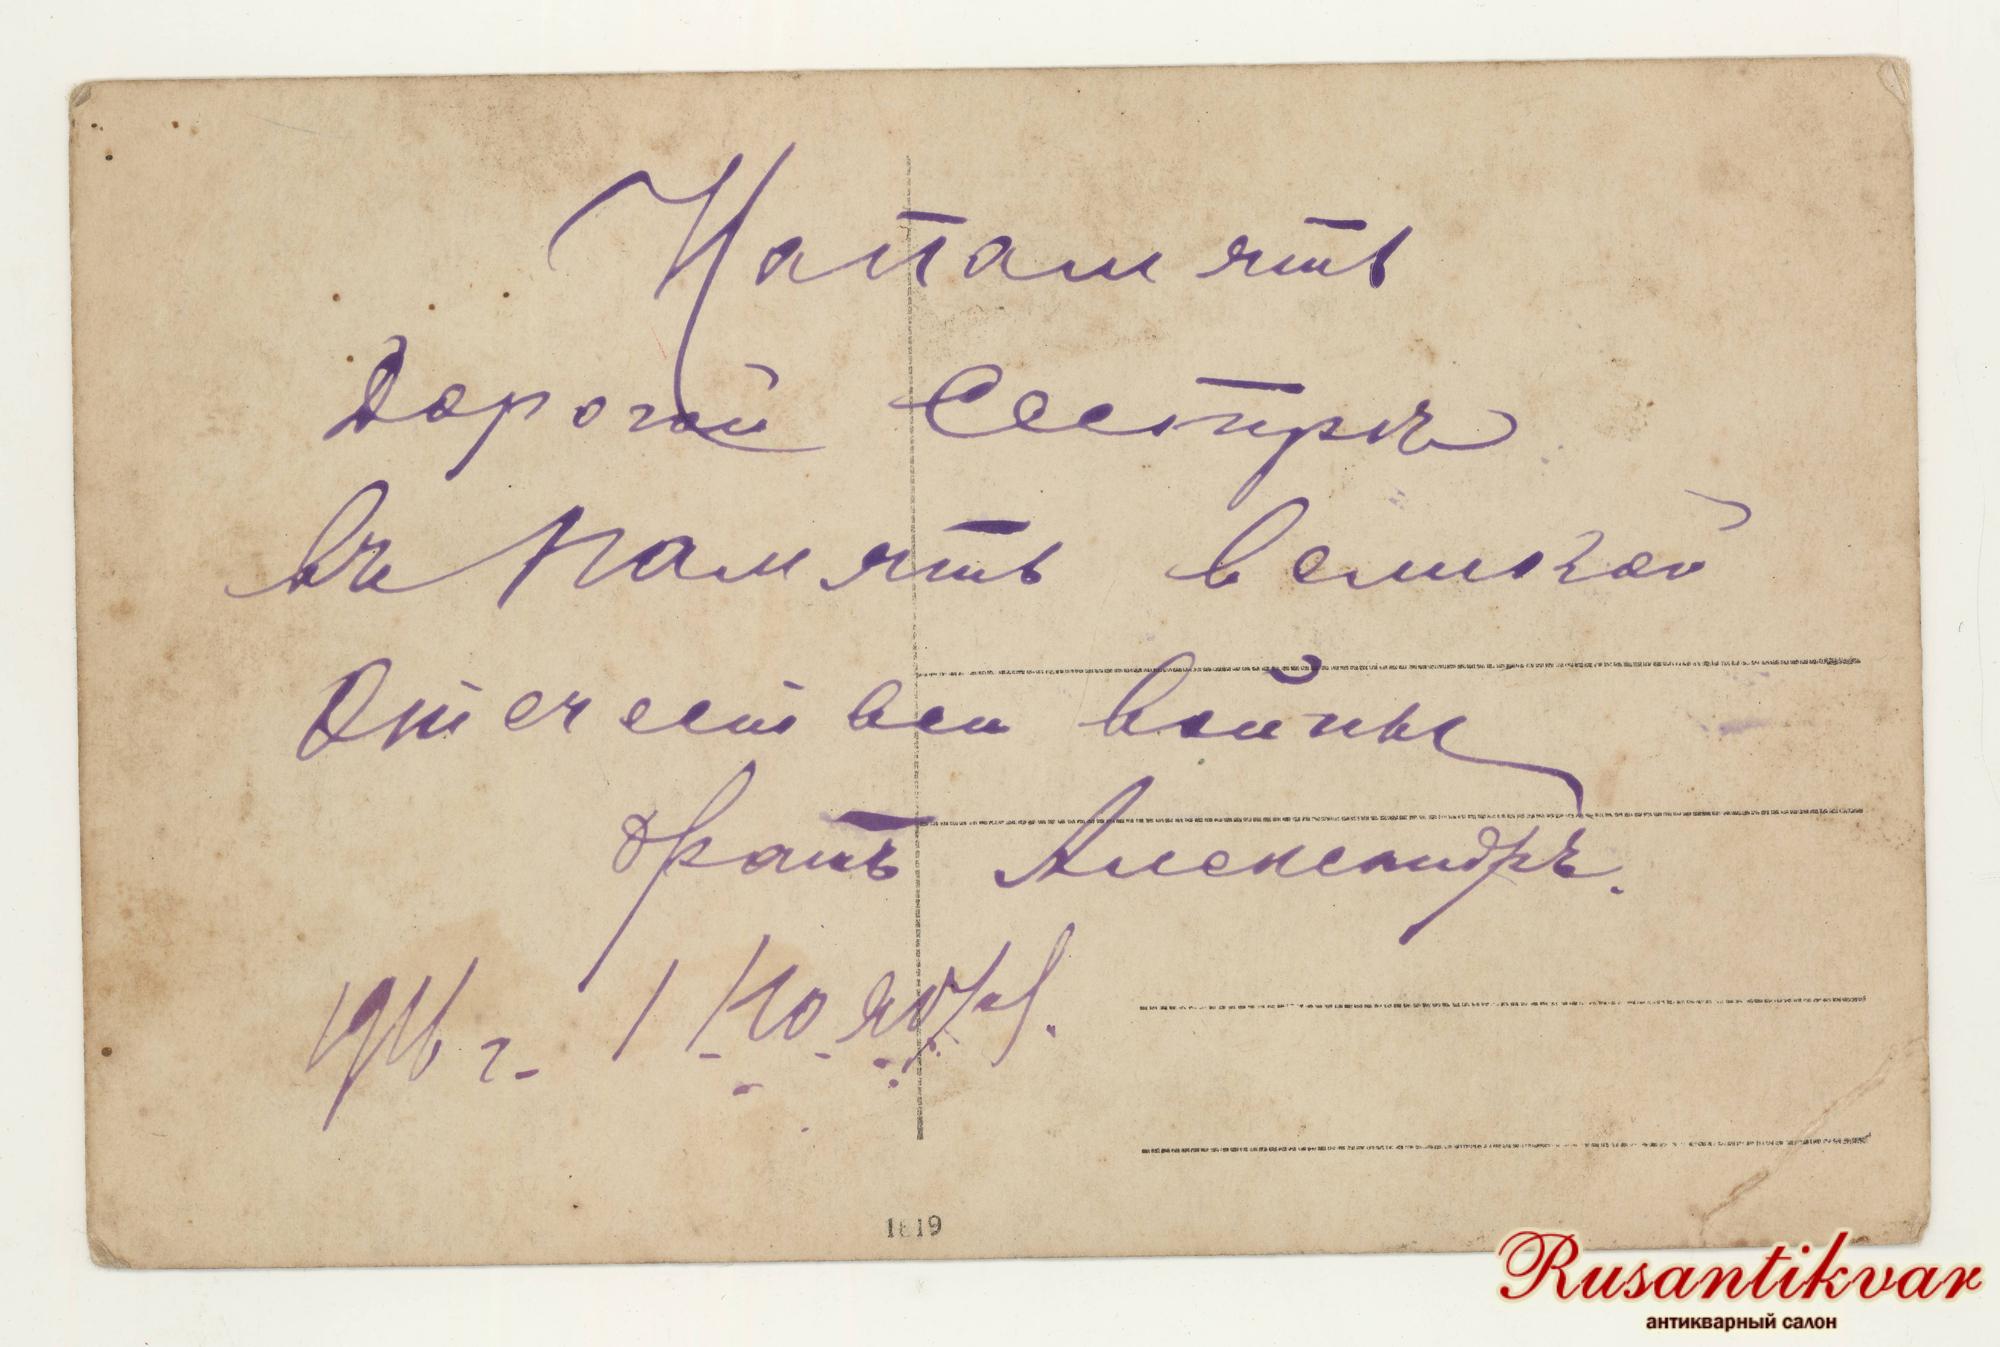 На память
Дорогой Сестръ
въ память великой
Отечествен войны
братъ Александръ.
1916 г. 1 Ноября.
1819
Rusantikvar
антикварный салон